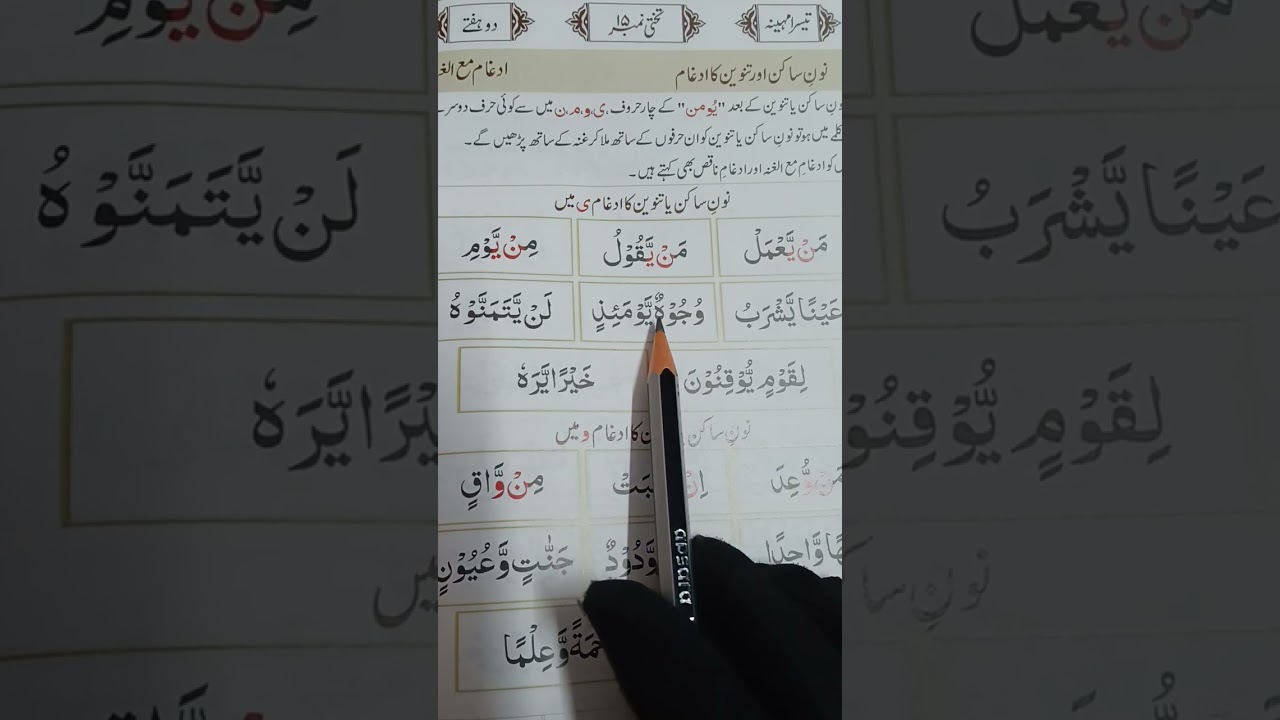 تیسرا مہینہ تختی نمبر ۱۵ دو ہفتے
نونِ ساکن اور تنوین کا ادغام ادغام مع الغ
نِ ساکن یا تنوین کے بعد "یُومن" کے چار حروف ی،و،م،ن میں سے کوئی حرف دوسرے
کلمے میں ہو تو نونِ ساکن یا تنوین کو ان حرفوں کے ساتھ ملا کر غنہ کے ساتھ پڑھیں گے۔
کو ادغام مع الغنہ اور ادغامِ ناقص بھی کہتے ہیں۔
نونِ ساکن یا تنوین کا ادغام ی میں
مَنْ يَّعْمَلْ مَنْ يَّقُوْلُ مِنْ يَّوْمِ
عَيْنًا يَّشْرَبُ وُجُوْهٌ يَّوْمَئِذٍ لَنْ يَّتَمَنَّوْهُ
لِقَوْمٍ يُّوْقِنُوْنَ خَيْرًا يَّرَهٗ
نونِ ساکن کا ادغام و میں
مَنْ وُّعِدَ اِنْ بَتْ مِنْ وَّاقٍ
وَّاحِدًا وَّدُوْدٌ جَنّٰتٍ وَّعُيُوْنٍ
مَةً وَّعِلْمًا